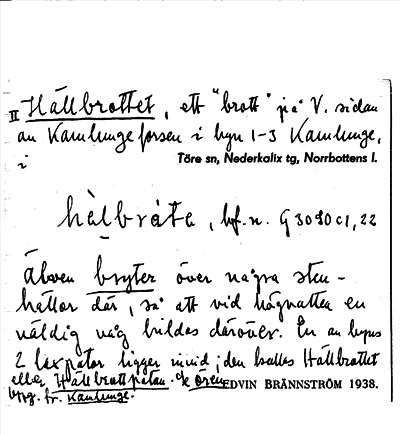 II Hällbrottet, ett "brott" på V. sidan
av Kamlungeforsen i byn 1-3 Kamlunge,
i Töre sn, Nederkalix tg, Norrbottens l.
hàlbråtə, bf. n. G 3090 c1, 22
Älven bryter över några sten-
hällor där, så att vid högvatten en
väldig våg bildas däröver. En av byns
2 laxpator ligger invid; den kallas Hällbrottet
eller Hällbrottpatan. ok Ören
EDVIN BRÄNNSTRÖM 1938.
byg. fr. Kamlunge.